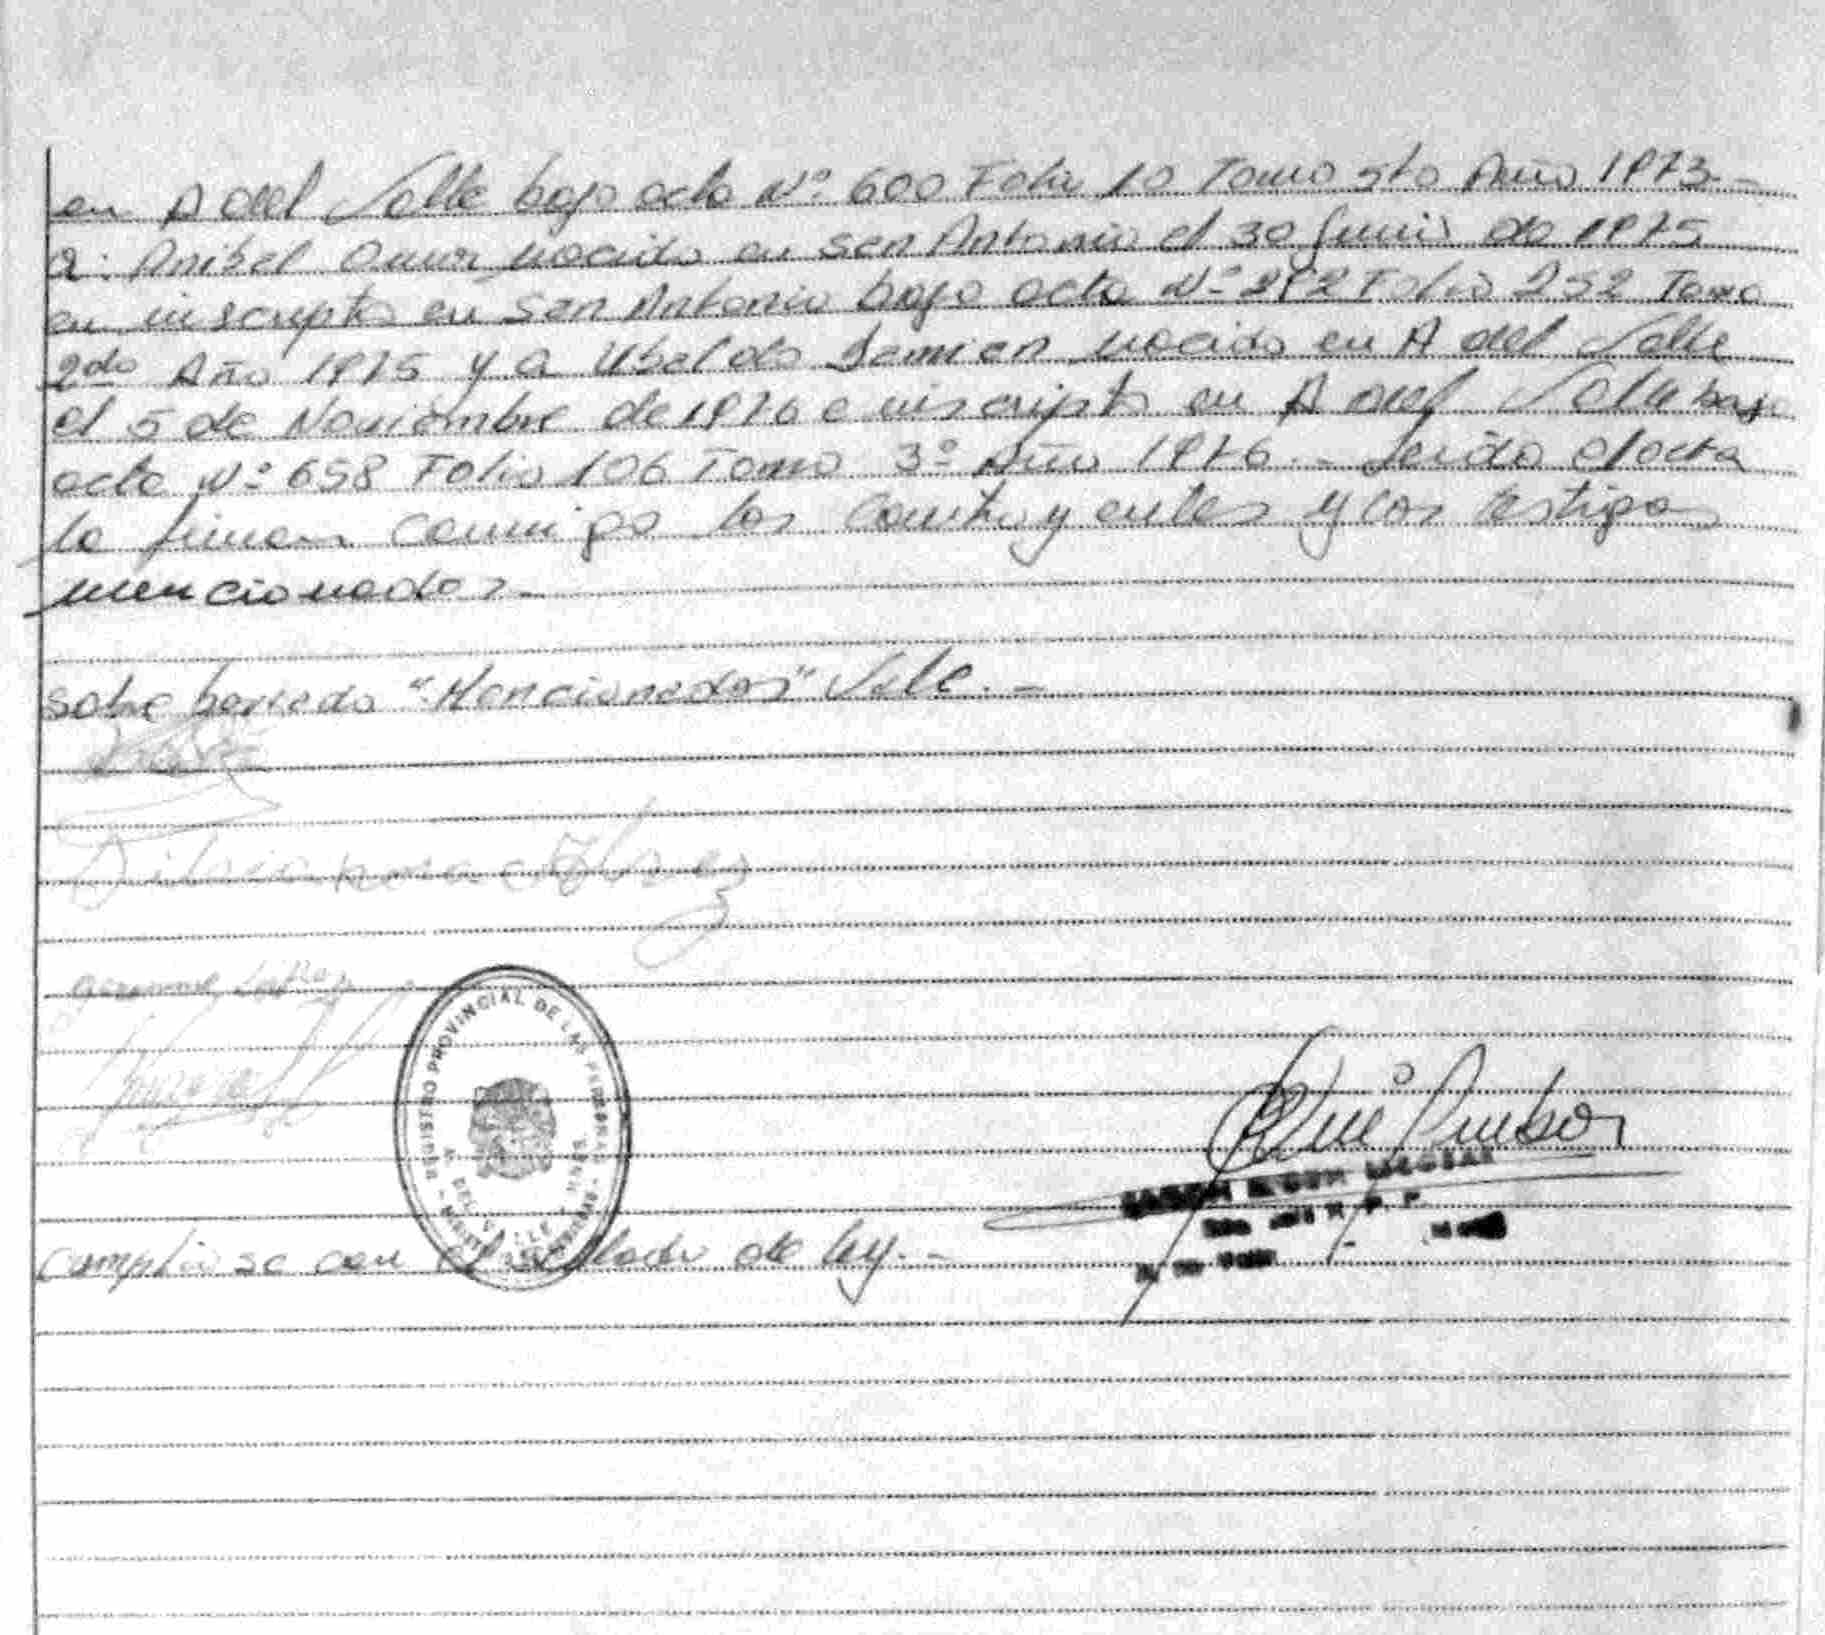 en A del Valle bajo acta Nº 600 Folio 10 Tomo 5to Año 1973.-
a: Anibal Omar nacido en San Antonio el 30 Junio de 1975
en inscripto en San Antonio bajo acta Nº 292 Folio 252 Tomo
2do Año 1975 y a Ubaldo Damian nacido en A del Valle
el 5 de Noviembre de 1976 e inscripto en A del Valle bajo
acta Nº 658 Folio 106 Tomo 3º Año 1976.- Leida el acta
la firman conmigo los contrayentes y los testigos
mencionados.-
Sobre borrado "Mencionados" Vale.-
REGISTRO PROVINCIAL DE LAS PERSONAS
A. DEL VALLE
cumpliose con el sellado de ley.-